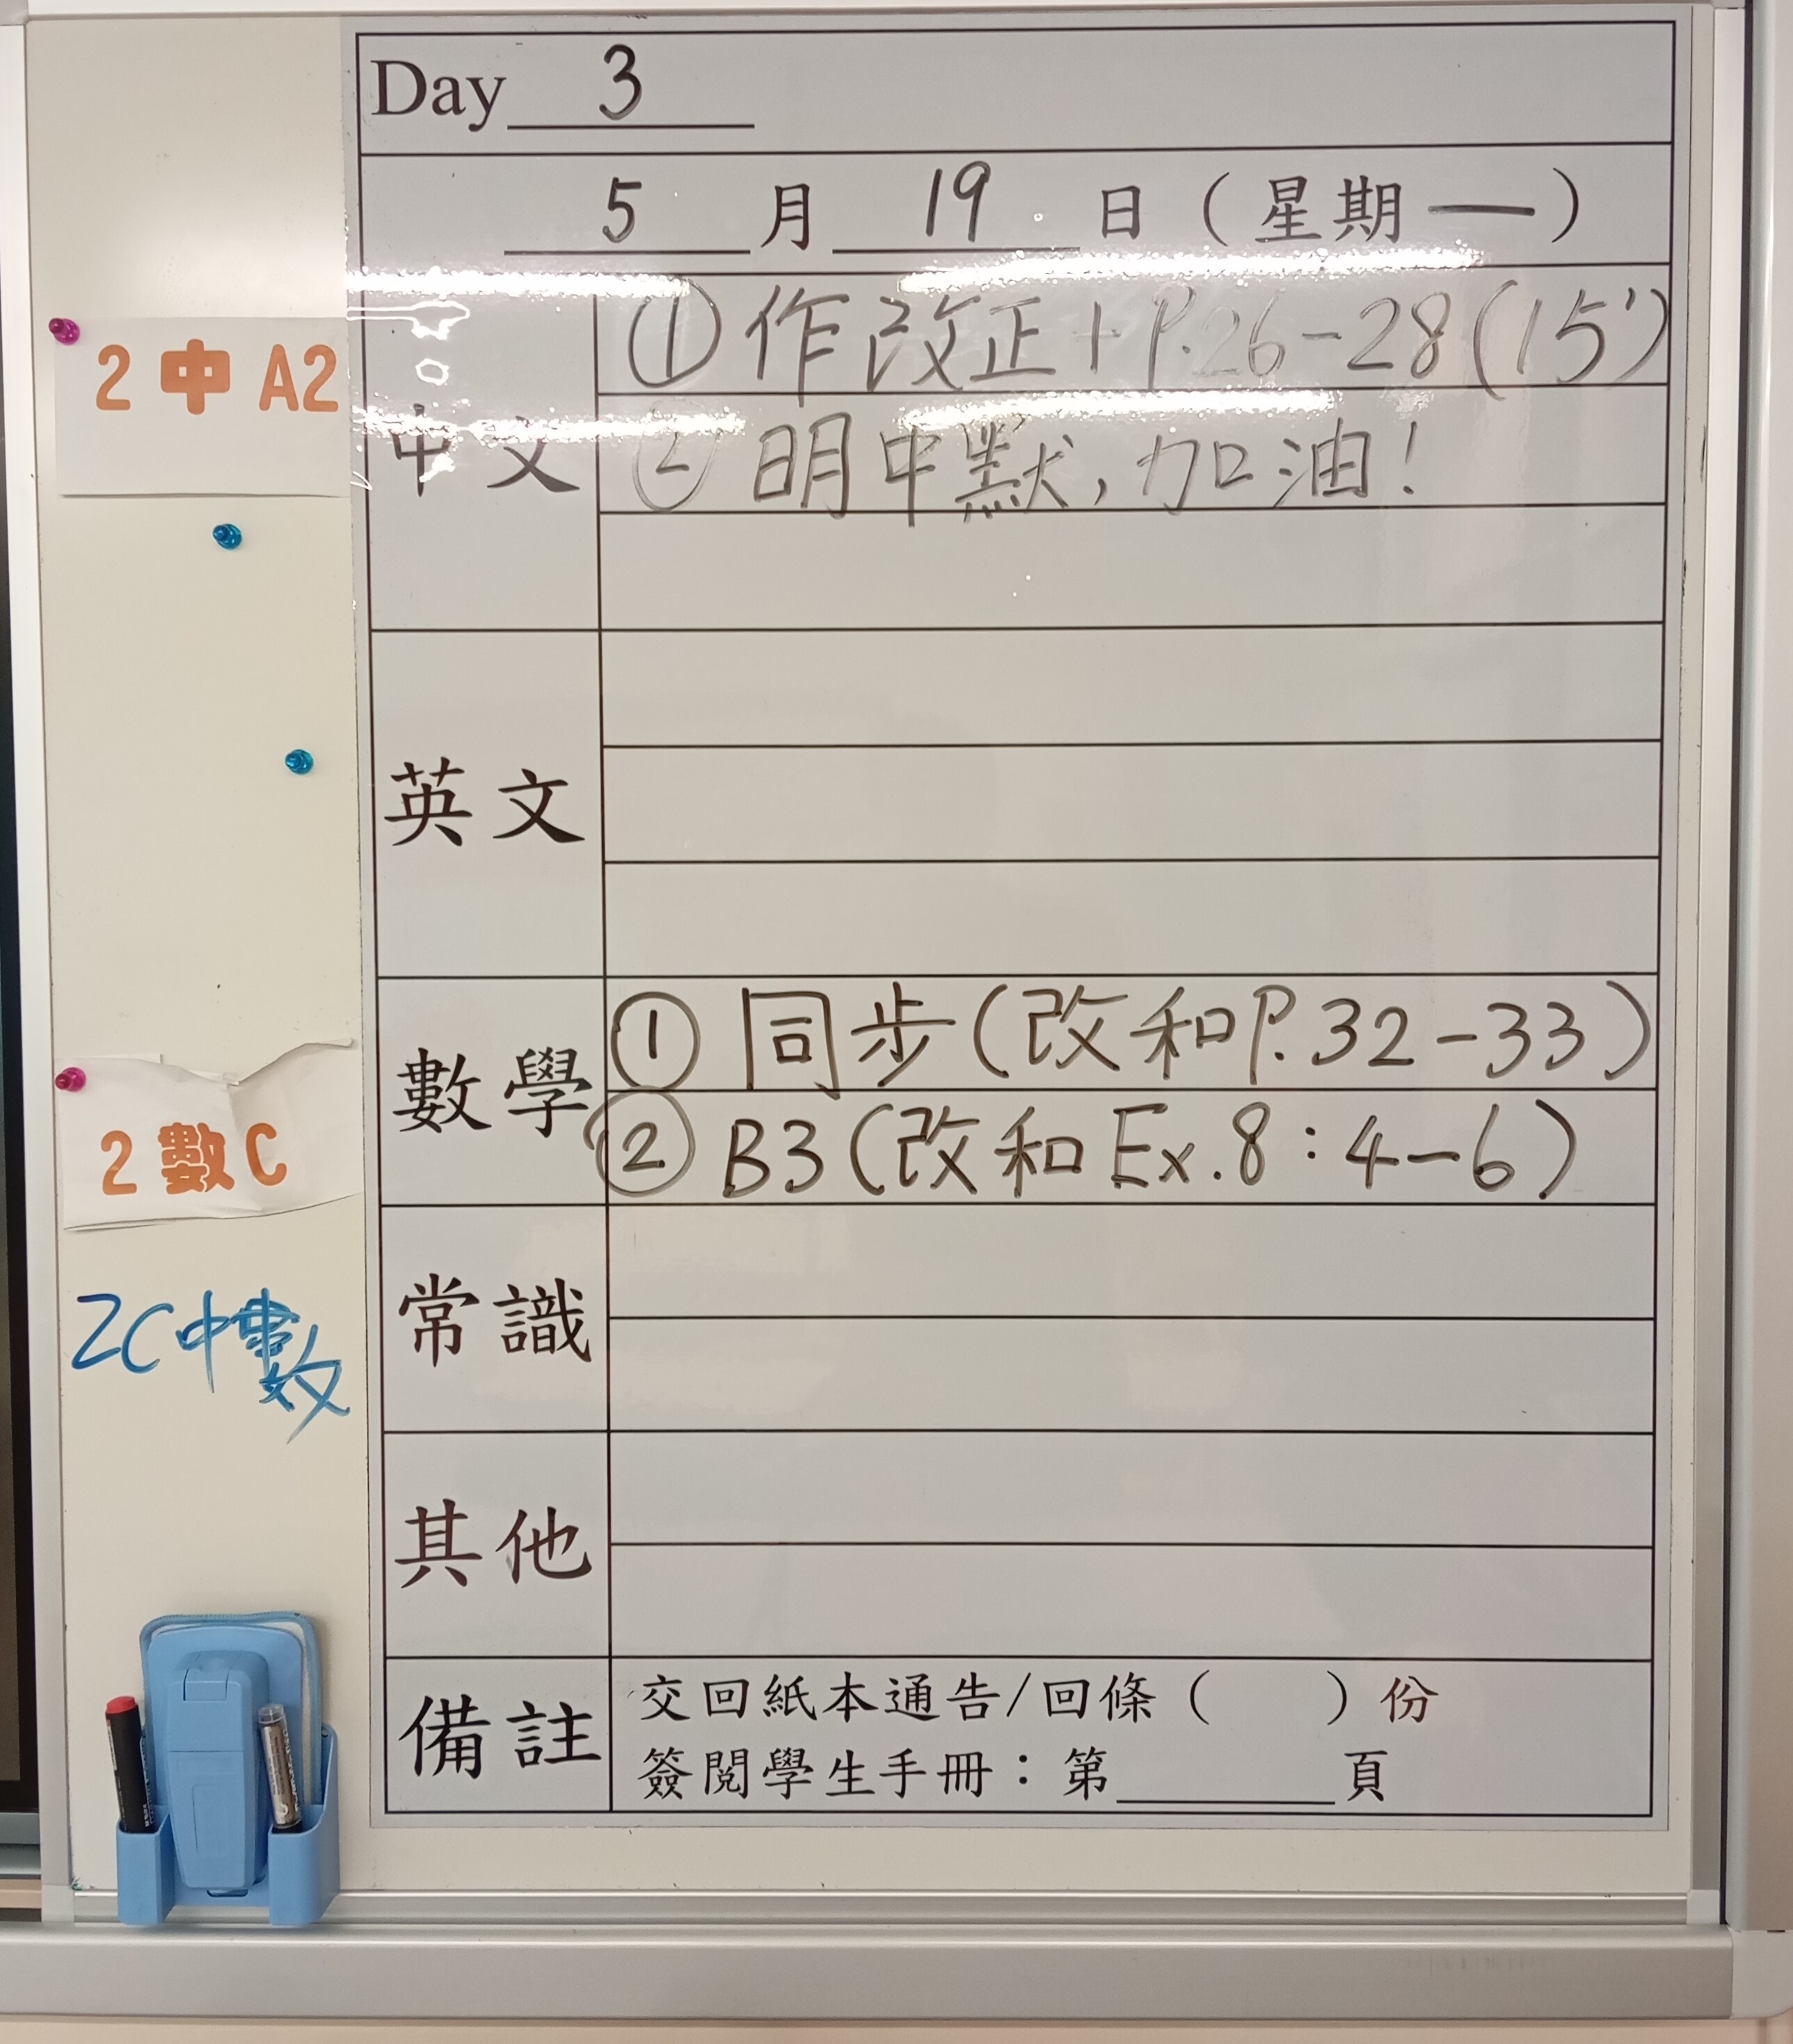 Day 3
5 月 19 日（星期一）
2 中 A2
中文
① 作改正+P.26-28(15')
② 明中默,加油!
英文
數學
① 同步(改和P.32-33)
② B3(改和Ex.8:4-6)
2 數 C
2C中數
常識
其他
備註
交回紙本通告/回條（ ）份
簽閱學生手冊：第 頁